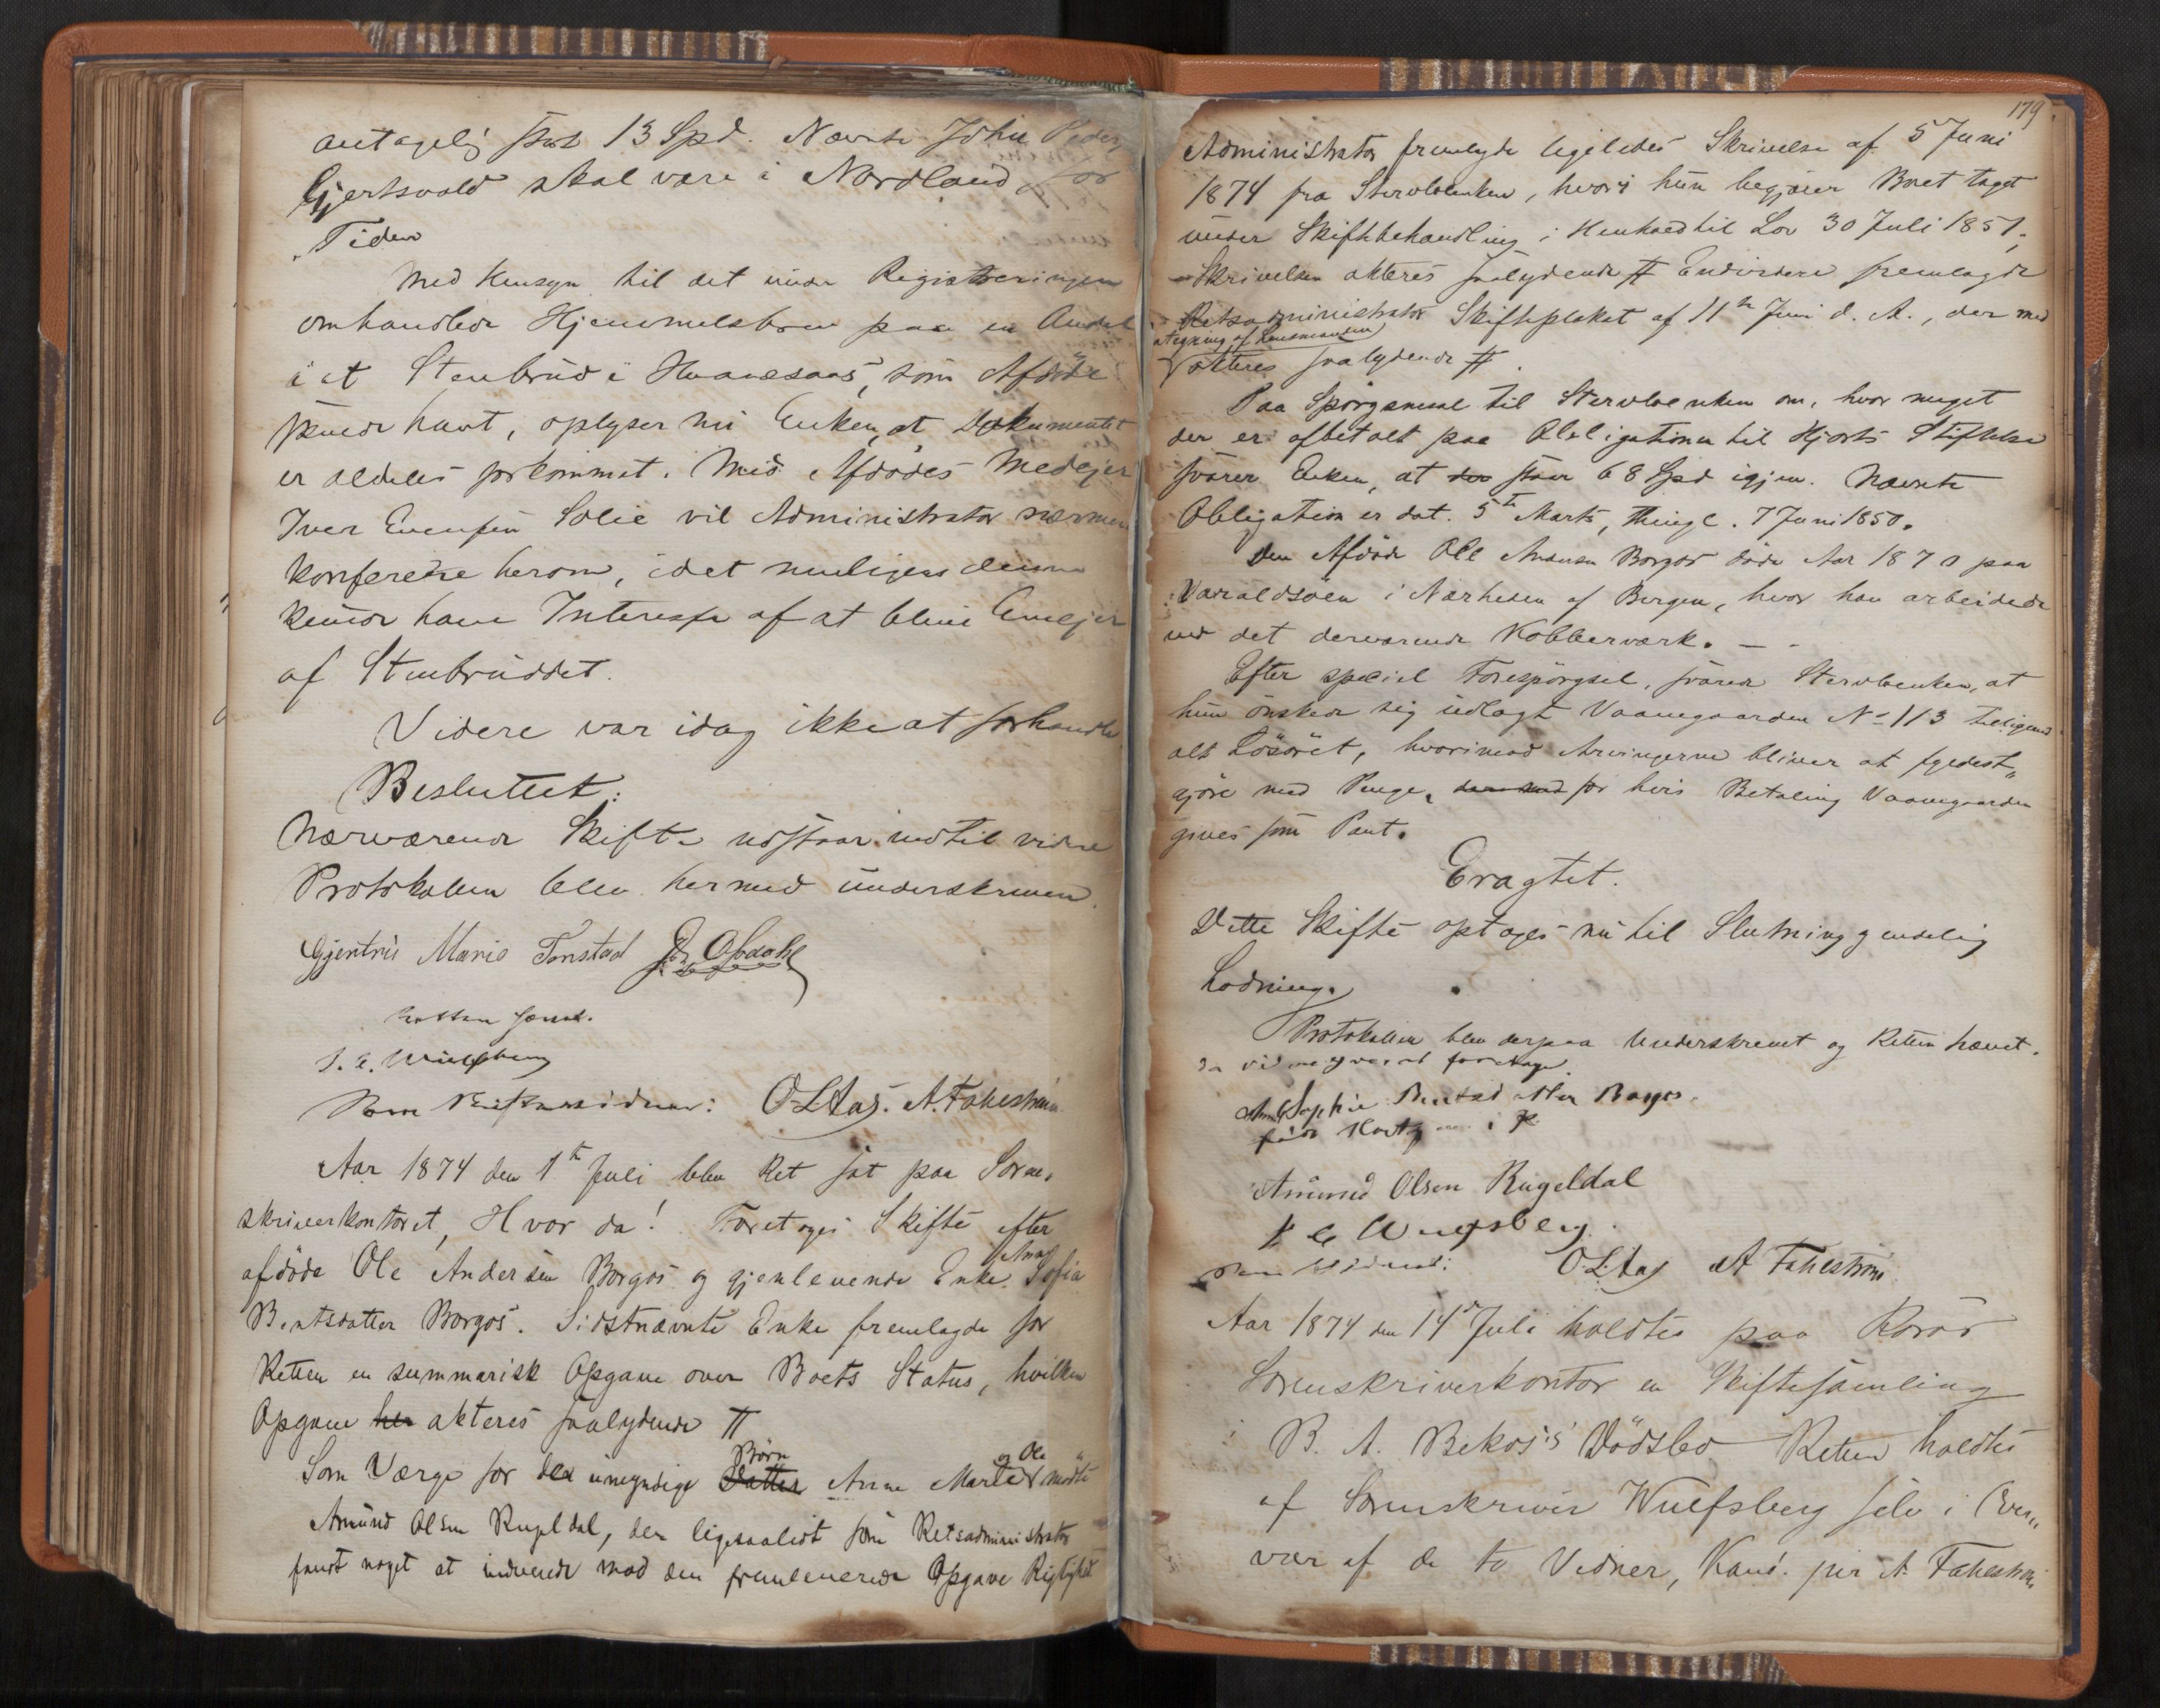 antagelig stort 13 Spd. Nævnte John Peders
Gjertsvold skal være i Nordland for
Tiden
Med Hensyn til det under Registreringen
omhandlede Hjemmelsbrev paa en Andel
i et Stenbrud i Hvaasaas, som Afdöde
skulde havt, oplyser nu Enken, at Dokumentet
er aldeles forkommet. Med Afdödes Medejer
Iver Evensen Solie vil Administrator nærmere
konferere herom, idet muligens denne
kunde have Interesse af at blive Eneejer
af Stenbruddet.
Videre var idag ikke at forhandle
Besluttet:
Nærværende Skifte udstaar indtil videre
Protokollen blev hermed underskreven.
Gjertrü Marie Tonstad Opdahl
Retten hævet.
J. C. Wulfsberg
Som Skiftesvidner: O. L. Aas. A. Fahlström
Aar 1874 den 1te Juli blev Ret sat paa Soren-
skriverkontoret, Hvor da! Foretoges Skifte efter
afdöde Ole Andersen Borgos og gjenlevende Enke Anne Sofia
Bentsdatter Borgos. Sidstnævnte Enke fremlagde for
Retten en summarisk Opgave over Boets Status, hvilken
Opgave her akteres saalydende #
Som Værge for den umyndige Datter Börn Anne Marte og Ole mödte
Amund Olsen Rugeldal, der ligesaalidt som Retsadministrator
fandt noget at indvende mod den fremleverede Opgave Rigtighed
179.
Administrator fremlagde ligeledes Skrivelse af 5 Juni
1874 fra Stervboenken, hvori hun begjærer Boet taget
under Skiftebehandling i Henhold til Lov 30 Juli 1851.
Skrivelsen akteres saalydende # Endvidere fremlagde
Retsadministrator Skifteplakat af 11te Juni d. A., der med
ategning af Lensmanden
akteres saalydende #.
Paa Spörgsmaal til Stervboenken om, hvor meget
der er afbetalt paa Obligationen til Hjorts Stiftelse
svarer Enken, at der staar 68 Spd igjen. Nævnte
Obligation er dat. 5te Marts, thingl. 7 Juni 1850.
Den Afdöde Ole Andersen Borgos döde Aar 1870 paa
Varaldsöen i Nærheden af Bergen, hvor han arbeidede
ved det derværende Kobberværk. —
Efter speciel Forespörgsel, svarer Stervboenken, at
hun önskede sig udlagt Vaanegaarden No 113 tilligemed
alt Lösöret, hvorimod Arvingerne bliver at fyldest-
gjöre med Penge, der med for hvis Betaling Vaanegaarden
gives som Pant.
Eragtet.
Dette Skifte optages nu til Slutning og endelig
Lodning.
Protokollen blev derpaa Underskrevet og Retten hævet.
da videre ej var at foretage.
Anne Sophie Bentsdatter Borgos.
födt
Amund Olsen Rugeldal
J. C. Wulfsberg.
Som Vidner: O. L. Aas A Fahlström
Aar 1874 den 14de Juli holdtes paa Röros
Sorenskriverkontor en Skiftesamling
i B. A. Bekos's Dödsbo Retten holdtes
af Sorenskriver Wulfsberg selv i Over-
vær af de to Vidner, Kand. jur A. Fahlström